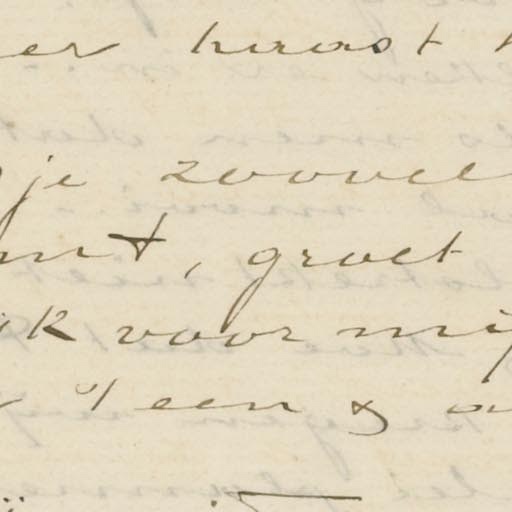 er naast
je zooveel
mt, groet
ik voor mij
een & a